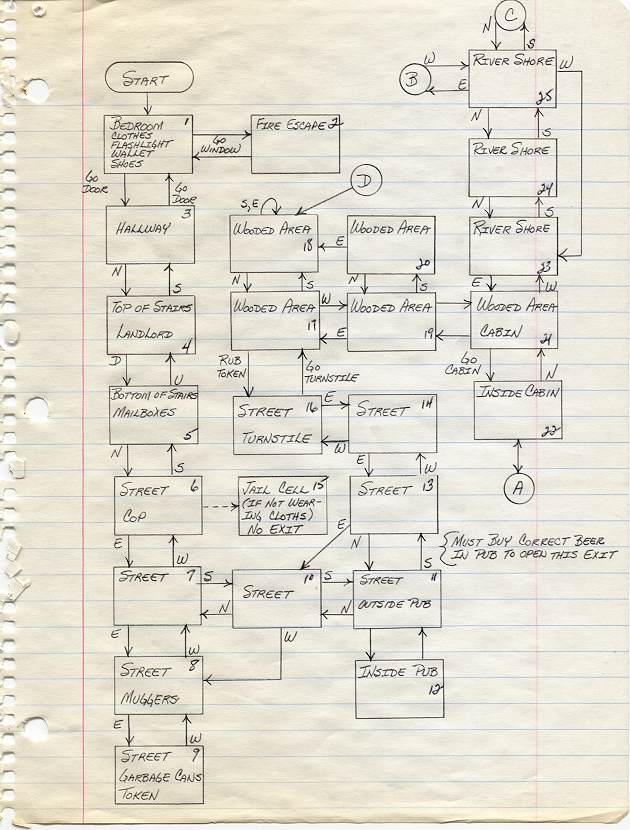 START
BEDROOM 1
CLOTHES
FLASHLIGHT
WALLET
SHOES
FIRE ESCAPE 2
GO
WINDOW
GO
DOOR
GO
DOOR
HALLWAY 3
N
S
TOP OF STAIRS
LANDLORD 4
D
U
BOTTOM OF STAIRS
MAILBOXES
5
N
S
STREET 6
COP
JAIL CELL 15
(IF NOT WEAR-
ING CLOTHS)
NO EXIT
E
W
STREET 7
S
N
E
W
STREET 8
MUGGERS
E
W
STREET 9
GARBAGE CANS
TOKEN
D
S, E
WOODED AREA
18
E
WOODED AREA
20
N
S
N
S
WOODED AREA
17
W
E
WOODED AREA
19
RUB
TOKEN
GO
TURNSTILE
STREET 16
TURNSTILE
E
W
STREET 14
E
W
STREET 13
E
N
S
MUST BUY CORRECT BEER
IN PUB TO OPEN THIS EXIT
STREET 10
S
N
W
STREET 11
OUTSIDE PUB
INSIDE PUB
12
C
N
S
B
W
E
RIVER SHORE
25
W
N
S
RIVER SHORE
24
N
S
RIVER SHORE
23
E
W
WOODED AREA
CABIN 21
GO
CABIN
N
INSIDE CABIN
22
A